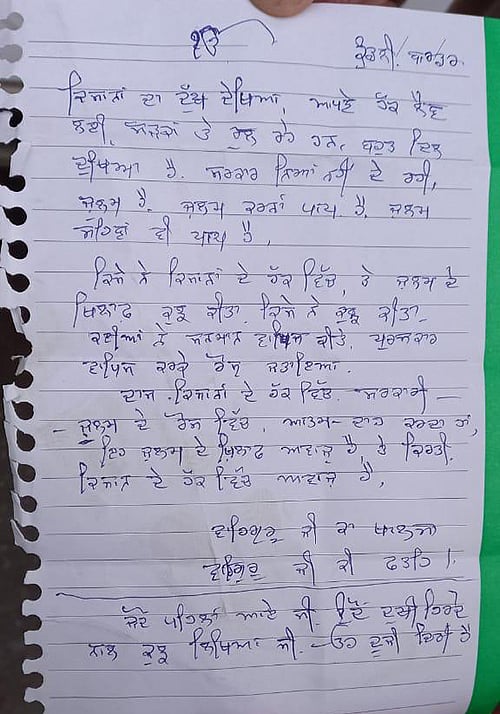 ੴ
ਕੁੰਡਲੀ ਬਾਰਡਰ
ਕਿਸਾਨਾਂ ਦਾ ਦੁੱਖ ਦੇਖਿਆ, ਆਪਣੇ ਹੱਕ ਲੈਣ
ਲਈ, ਸੜਕਾਂ ਤੇ ਰੁਲ ਰਹੇ ਹਨ, ਬਹੁਤ ਦਿਲ
ਦੁਖਿਆ ਹੈ. ਸਰਕਾਰ ਨਿਆਂ ਨਹੀਂ ਦੇ ਰਹੀ,
ਜੁਲਮ ਹੈ. ਜੁਲਮ ਕਰਨਾ ਪਾਪ ਹੈ, ਜੁਲਮ
ਸਹਿਣਾ ਵੀ ਪਾਪ ਹੈ,
ਕਿਸੇ ਨੇ ਕਿਸਾਨਾਂ ਦੇ ਹੱਕ ਵਿੱਚ, ਤੇ ਜੁਲਮ ਦੇ
ਖਿਲਾਫ ਕੁਝ ਕੀਤਾ ਕਿਸੇ ਨੇ ਕੁਝ ਕੀਤਾ-
ਕਈਆਂ ਨੇ ਸਨਮਾਨ ਵਾਪਿਸ ਕੀਤੇ, ਪੁਰਸਕਾਰ
ਵਾਪਿਸ ਕਰਕੇ ਰੋਸ ਜਤਾਇਆ.
ਦਾਸ ਕਿਸਾਨਾਂ ਦੇ ਹੱਕ ਵਿੱਚ, ਸਰਕਾਰੀ -
- ਜੁਲਮ ਦੇ ਰੋਸ ਵਿੱਚ, ਆਤਮ-ਦਾਹ ਕਰਦਾ ਹਾਂ,
ਇਹ ਜੁਲਮ ਦੇ ਖਿਲਾਫ ਅਵਾਜ਼ ਹੈ, ਤੇ ਕਿਰਤੀ
ਕਿਸਾਨ ਦੇ ਹੱਕ ਵਿੱਚ ਅਵਾਜ਼ ਹੈ,
ਵਾਹਿਗੁਰੂ ਜੀ ਕਾ ਖਾਲਸਾ
ਵਾਹਿਗੁਰੂ ਜੀ ਕੀ ਫਤਹਿ ।
ਜਦੋਂ ਪਹਿਲਾਂ ਆਏ ਸੀ, ਉਦੋਂ ਦੁਖੀ ਹਿਰਦੇ
ਨਾਲ ਕੁਝ ਲਿਖਿਆ ਸੀ - ਉਹ ਦੂਜੀ ਚਿਠੀ ਹੈ